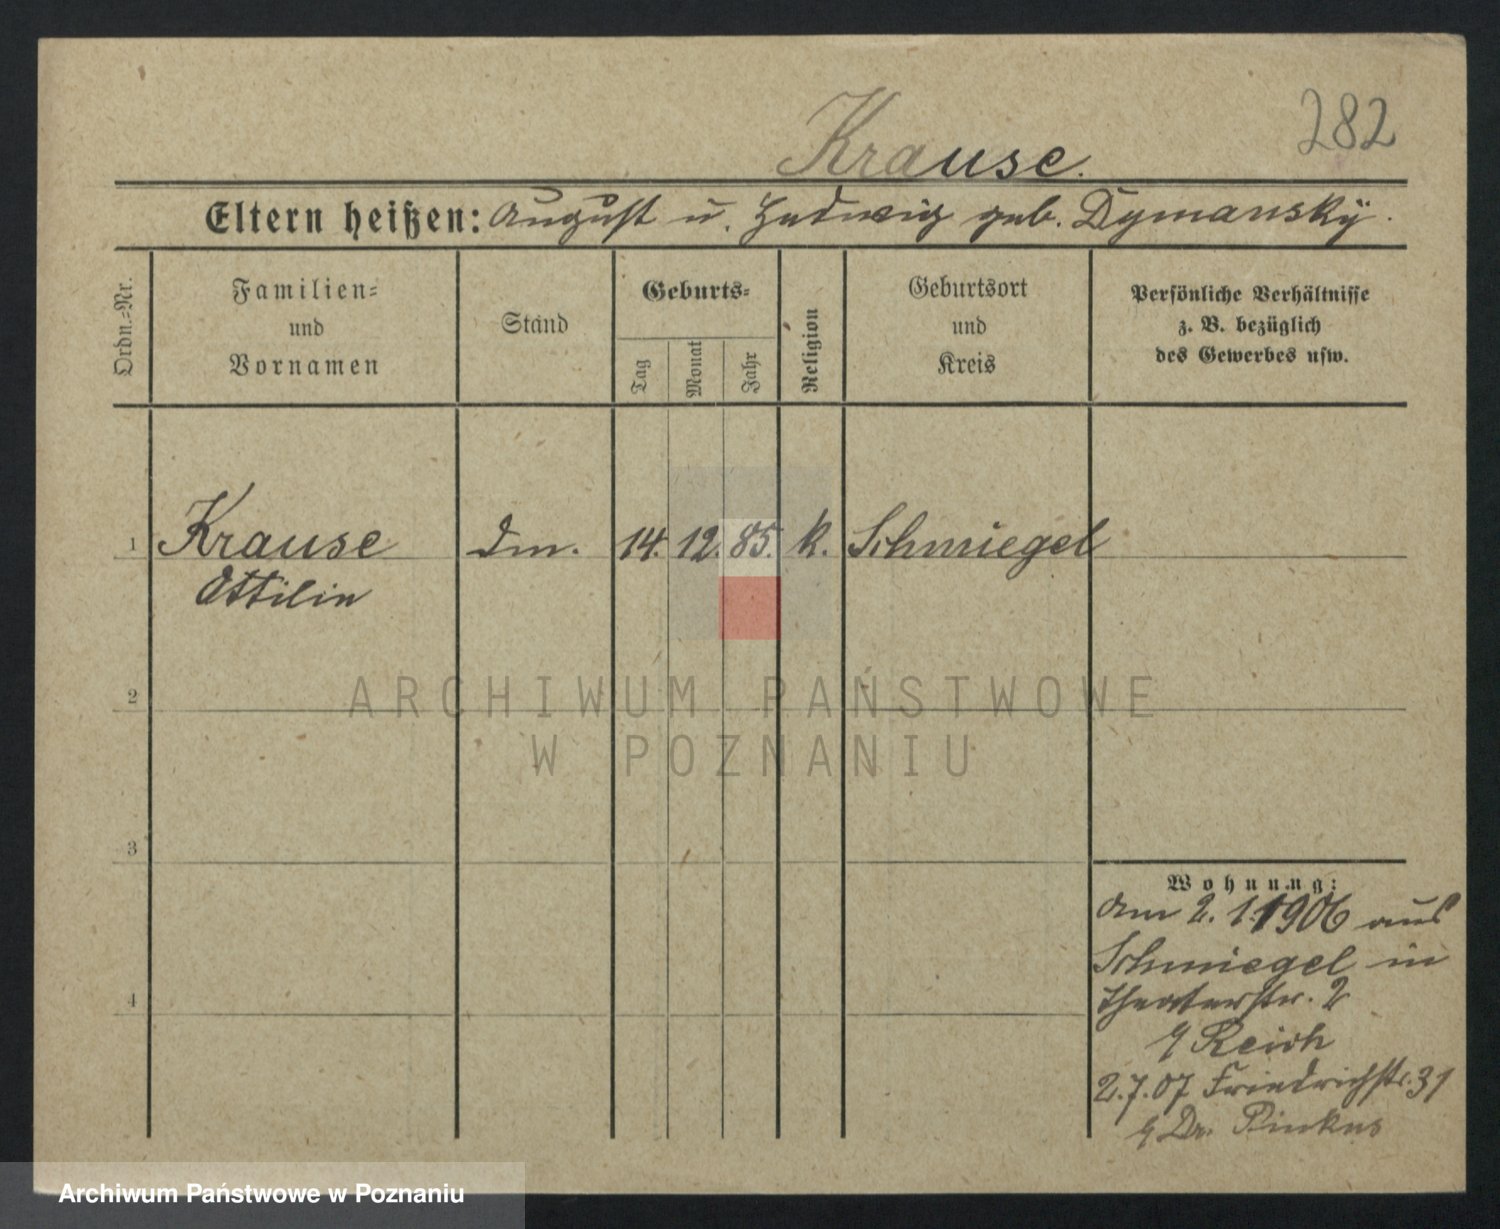 282
Krause.
Eltern heißen: August u. Hedwig geb. Dymansky.
Ordn.-Nr.
Familien- und Vornamen
Stand
Geburts-
Tag
Monat
Jahr
Religion
Geburtsort und Kreis
Persönliche Verhältnisse
z. B. bezüglich
des Gewerbes usw.
1 Krause dm. 14. 12. 85. k. Schmiegel
Ottilie
2
ARCHIWUM PAŃSTWOWE
W POZNANIU
3
Wohnung:
am 2. 1. 1906 aus
Schmiegel in
4
Theaterstr. 2
Reich
2.7.07 Friedrichstr. 31
Dr. Pinkus
Archiwum Państwowe w Poznaniu